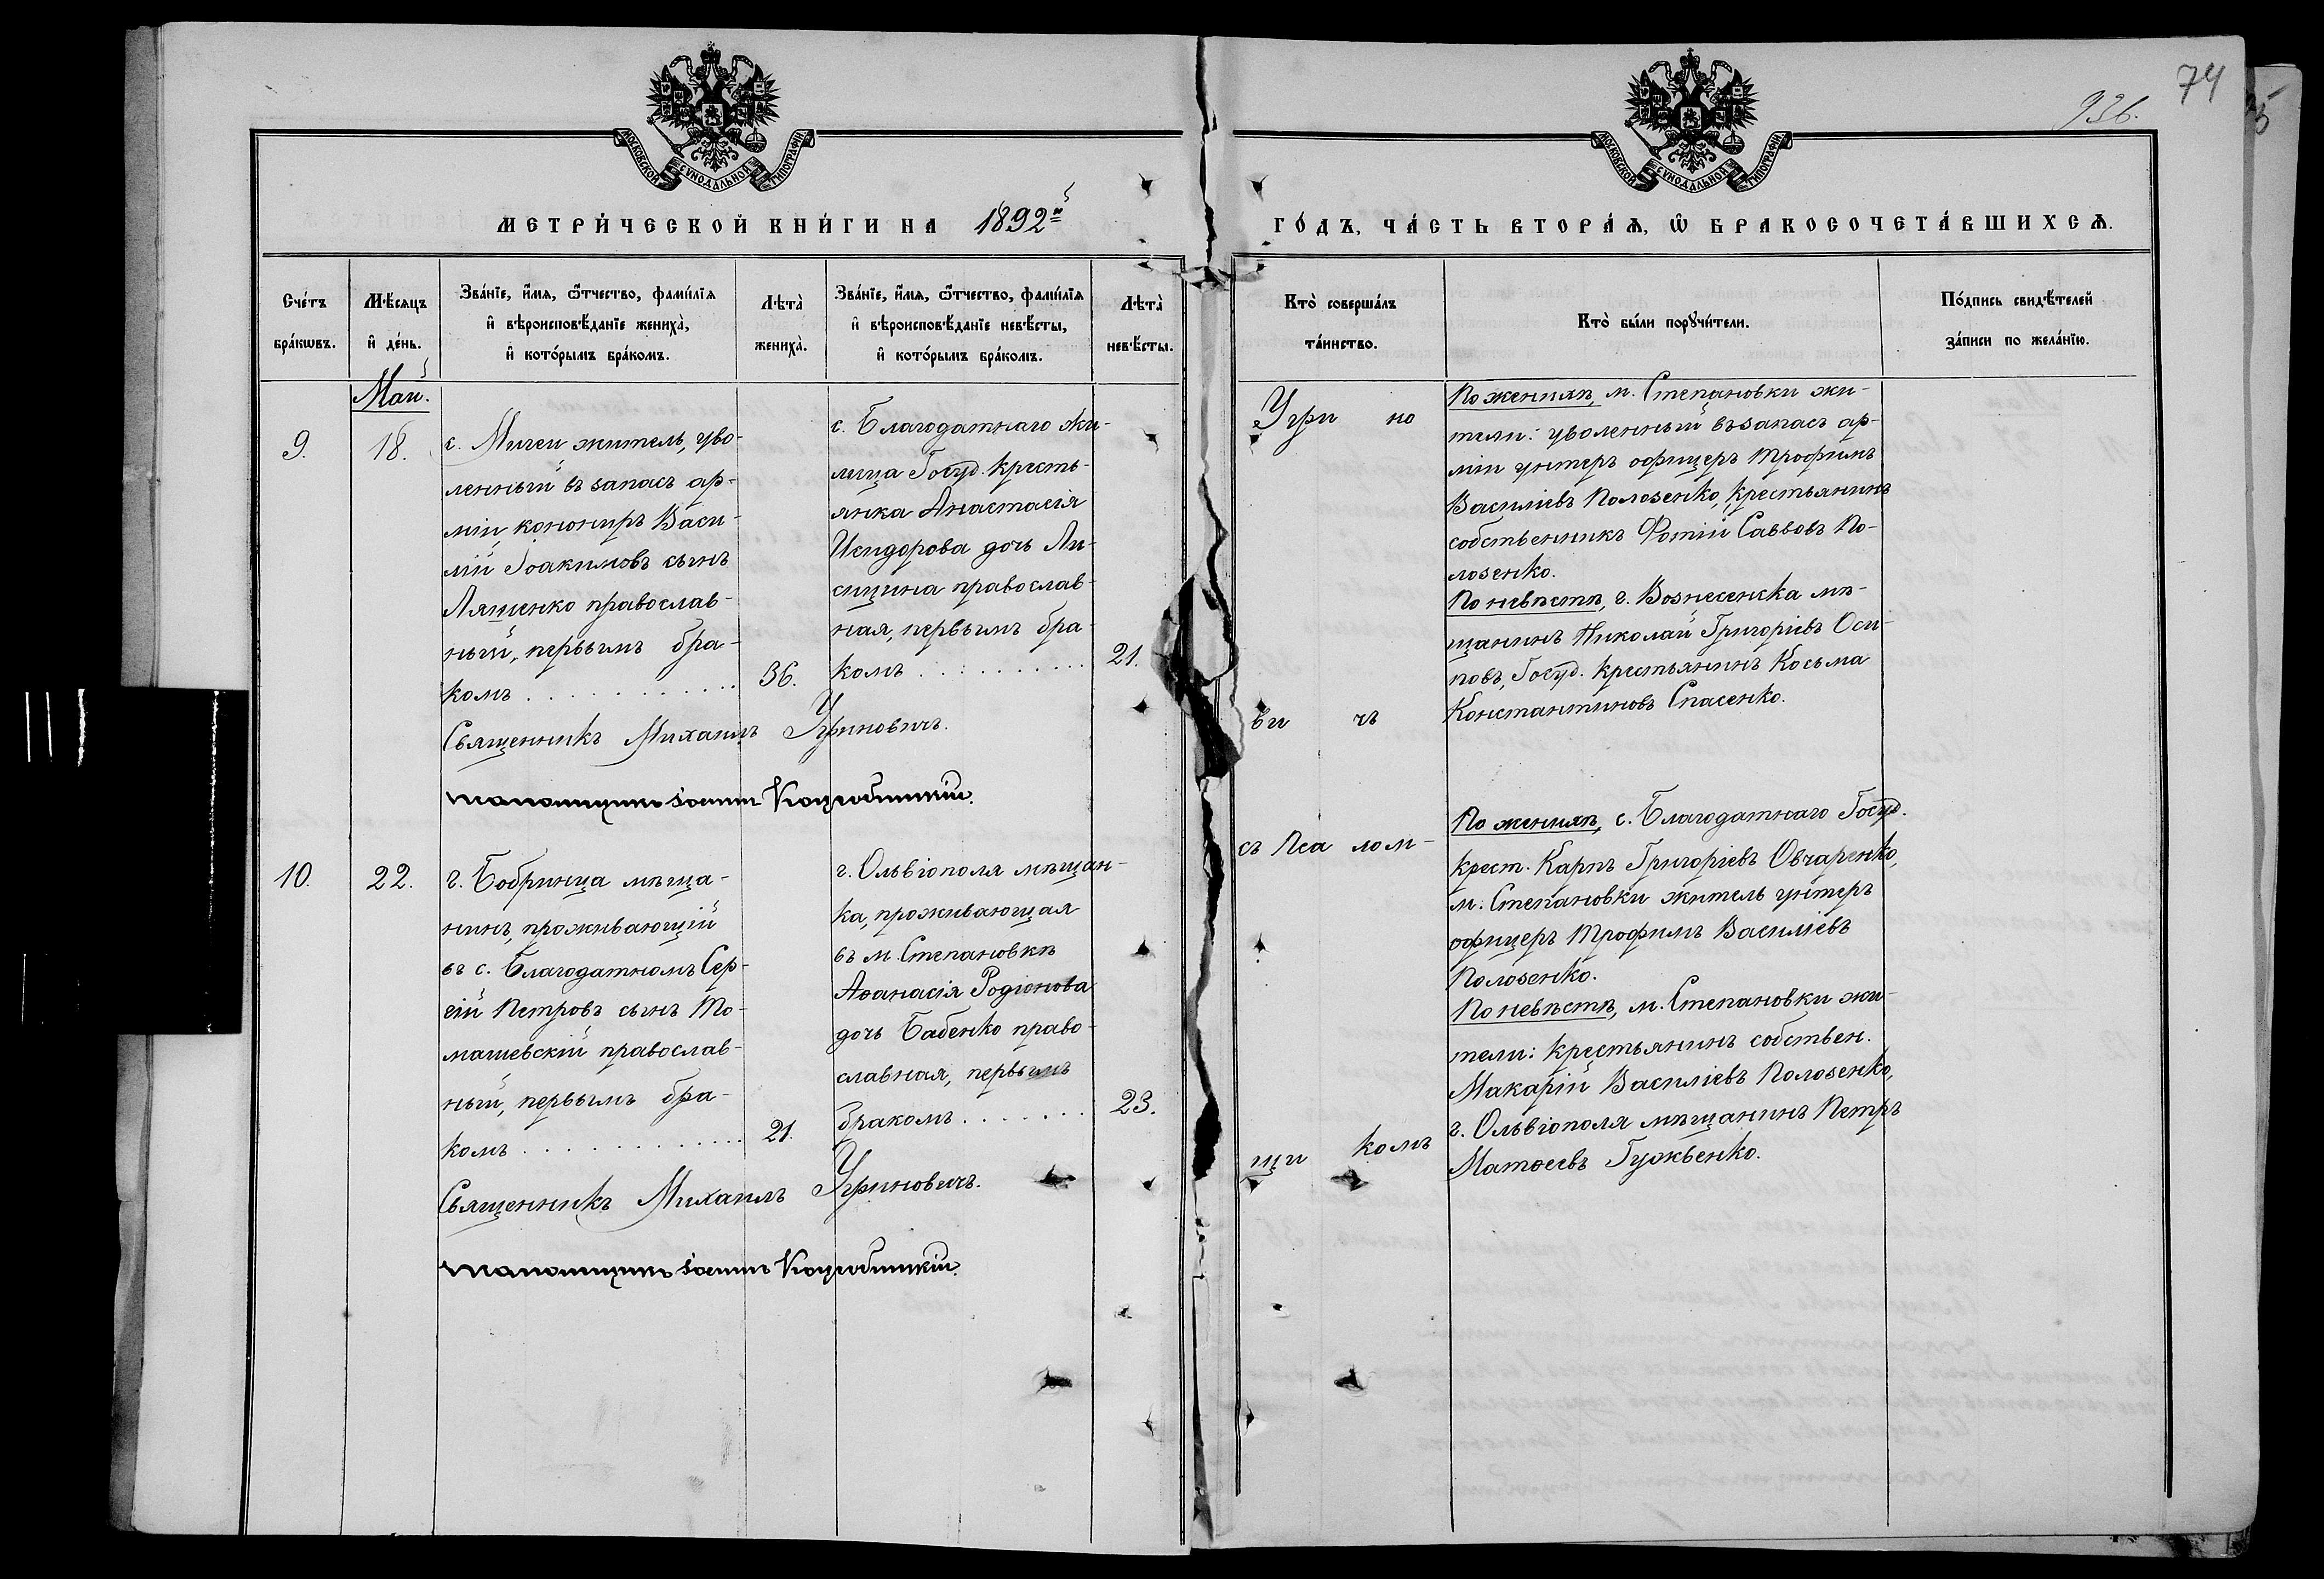 74
936.
МОСКОВСКОЙ СѴНОДАЛЬНОЙ ТИПОГРАФІИ
МОСКОВСКОЙ СѴНОДАЛЬНОЙ ТИПОГРАФІИ
МЕТРИ́ЧЕСКОЙ КНИ́ГИ НА 1892й
ГО́ДЪ, ЧА́СТЬ ВТОРА́Ѧ, Ѡ҆ БРАКОСОЧЕТА́ВШИХСѦ.
Сче́тъ
бра́кѡвъ.
Мѣ́сяцъ
и҆ де́нь.
Зва́нїе, и҆́мѧ, ѻ҆́тчество, фами́лїѧ
и҆ вѣроисповѣ́данїе жениха̀,
и҆ кото́рымъ бра́комъ.
Лѣта̀
жениха̀.
Зва́нїе, и҆́мѧ, ѻ҆́тчество, фами́лїѧ
и҆ вѣроисповѣ́данїе невѣ́сты,
и҆ кото́рымъ бра́комъ.
Лѣта̀
невѣ́сты.
Кто̀ соверша́лъ
та́инство.
Кто̀ бы́ли порꙋчи́тели.
По́дпись свидѣ́телей
за́писи по жела́нїю.
Май.
9.
18.
с. Мигеи житель, уво-
ленный въ запасъ ар-
міи канониръ Васи-
лій Іоакимовъ сынъ
Ляшенко православ-
ный, первымъ бра-
комъ . . . . . . . . . . .
36.
с. Благодатнаго жи-
лица Госуд. кресть-
янка Анастасія
Исидорова дочь Ли-
сицина православ-
ная, первымъ бра-
комъ . . . . . . . . .
21.
Священникъ Михаилъ Угриновичъ.
Угри но
ви чъ
По женихѣ, м. Степановки жи-
тели: уволенный въ запасъ ар-
міи унтеръ офицеръ Трофимъ
Василіевъ Полозенко, крестьянинъ
собственникъ Фотій Саввовъ По-
лозенко.
По невѣстѣ, г. Вознесенска мѣ-
щанинъ Николай Григоріевъ Оси-
повъ, Госуд. крестьянинъ Косьма
Константиновъ Спасенко.
10.
22.
г. Бобринца мѣща-
нинъ, проживающій
въ с. Благодатномъ Сер-
гій Петровъ сынъ То-
машевскій православ-
ный, первымъ бра-
комъ . . . . . . . . . . . .
21.
г. Ольвіополя мѣщан-
ка, проживающая
въ м. Степановкѣ
Аѳанасія Родіонова
дочь Бабенко право-
славная, первымъ
бракомъ . . . . . .
23.
Священникъ Михаилъ Угриновичъ.
съ Пса лом-
щи комъ
По женихѣ, с. Благодатнаго Госуд.
крест. Карпъ Григоріевъ Овчаренко,
м. Степановки житель унтеръ
офицеръ Трофимъ Василіевъ
Полозенко.
По невѣстѣ, м. Степановки жи-
тели: крестьянинъ собствен.
Макарій Василіевъ Полозенко,
г. Ольвіополя мѣщанинъ Петръ
Матѳеевъ Гужвенко.